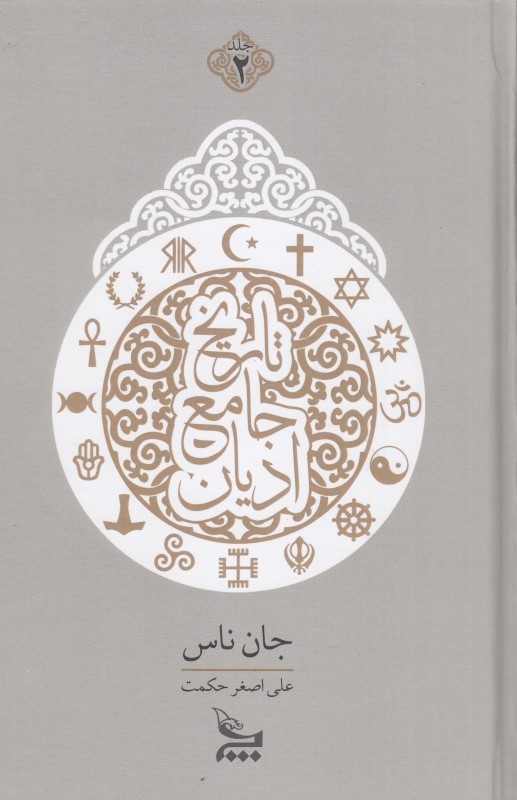 جلد
۲
تاریخ
جامع
ادیان
جان ناس
علی اصغر حکمت